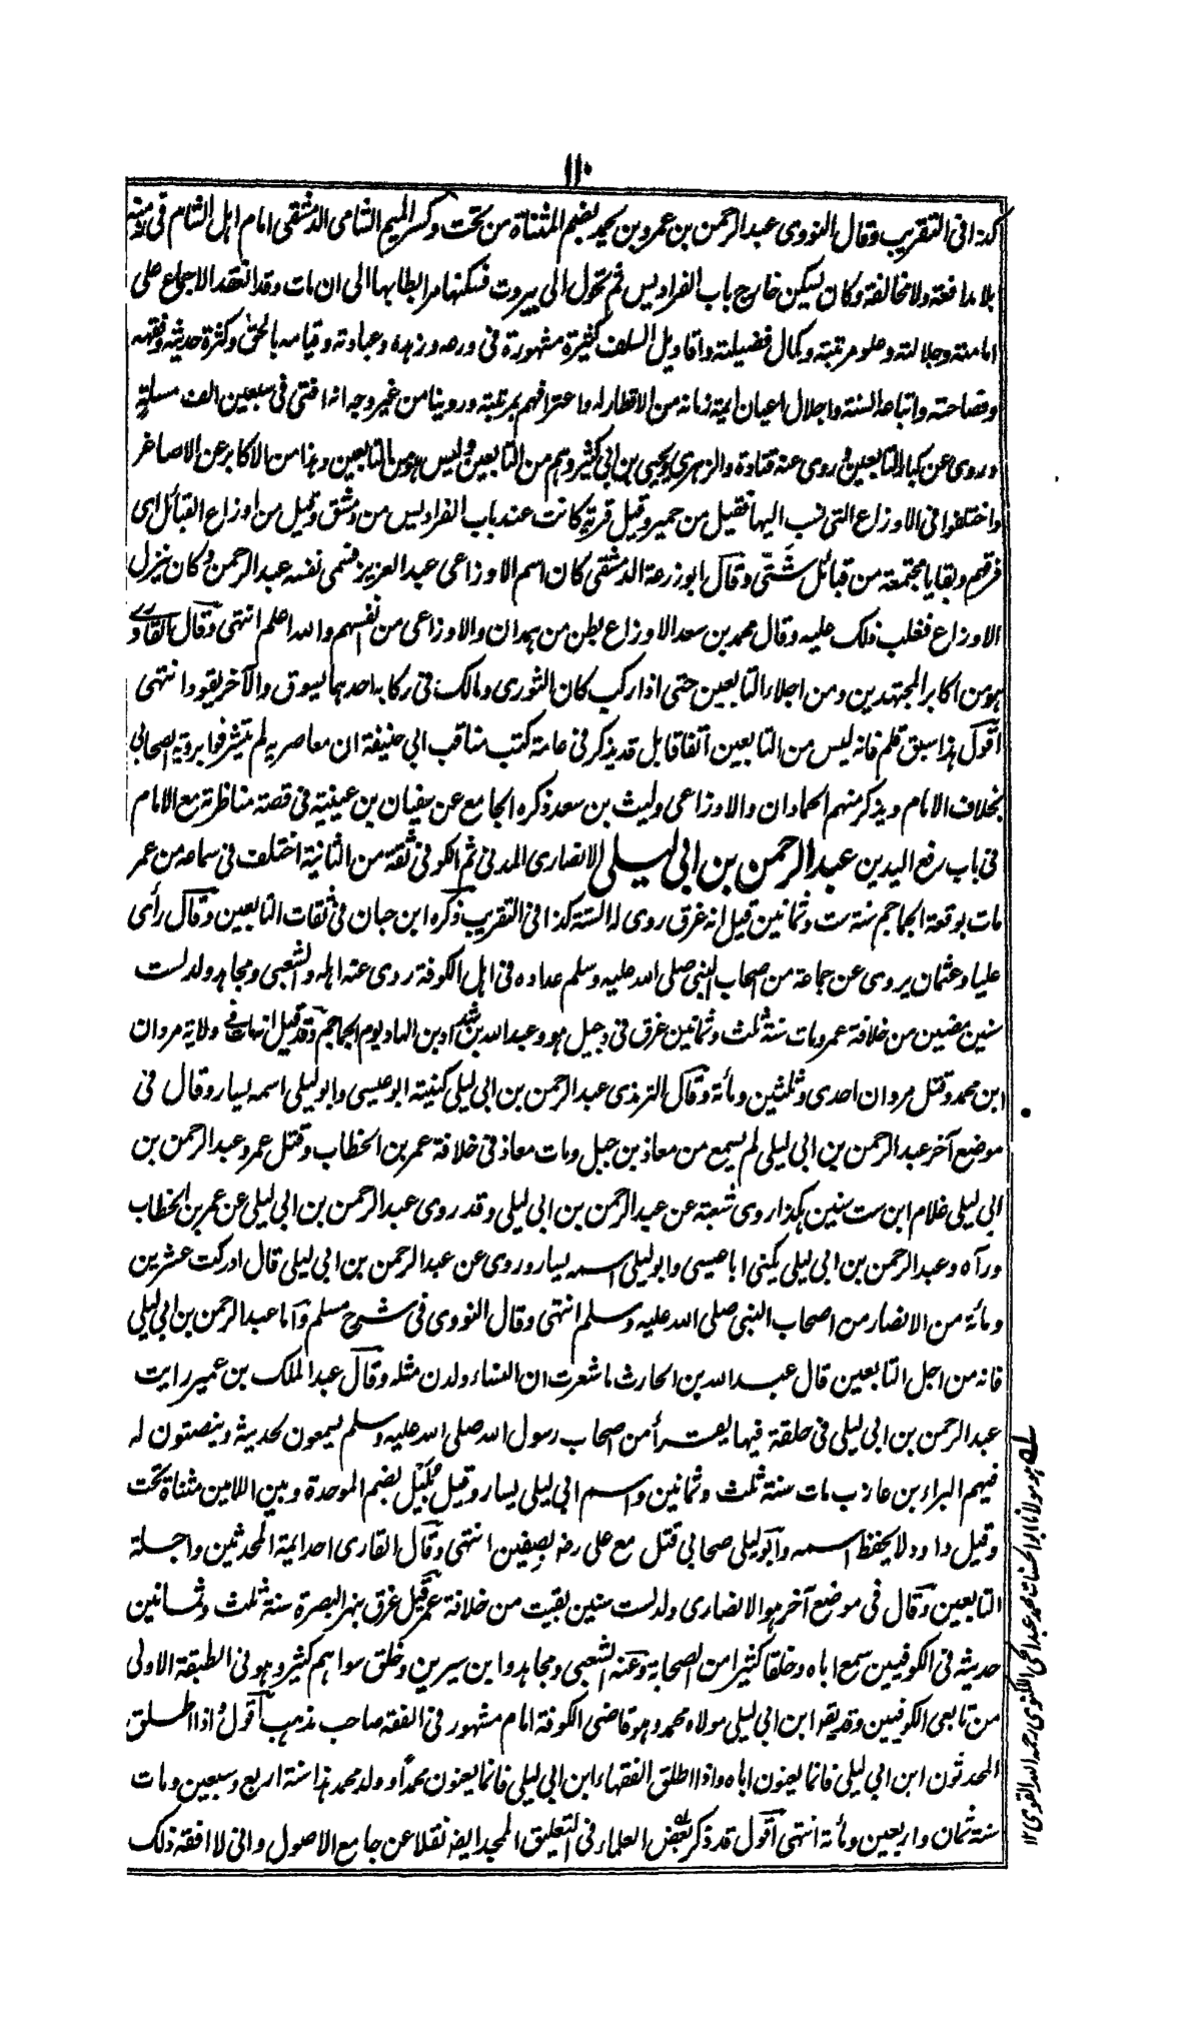 ١١٠
كذا فى التقريب وقال النووى عبد الرحمن بن عمرو بن يحمد بضم المثناة من تحت وكسر الميم الشامى الدمشقى امام اهل الشام فى زمنه
بلا مدافعة ولا مخالفة وكان يسكن خارج باب الفراديس ثم تحول الى بيروت فسكنها مرابطا بها الى ان مات وقد انعقد الاجماع على
امامته وجلالته وعلو مرتبته وكمال فضيلته واقاويل السلف كثيرة مشهورة فى ورعه وزهده وعبادته وقيامه بالحق وكثرة حديثه وفقهه
وفصاحته واتباعه السنة واجلال اعيان ايمة زمانه من الاقطار له واعترافهم بمرتبته وروينا من غير وجه انه افتى فى سبعين الف مسئلة
وروى عن كبار التابعين وروى عنه قتادة والزهرى ويحيى بن ابى كثير وهم من التابعين وليس هو من التابعين وهذا من الاكابر عن الاصاغر
واختلفوا فى الاوزاع التى نسب اليها فقيل من حمير وقيل قرية كانت عند باب الفراديس من دمشق وقيل من اوزاع القبائل اى
فرقهم وبقايا مجتمعة من قبائل شتى وقال ابو زرعة الدمشقى كان اسم الاوزاعى عبد العزيز فسمى نفسه عبد الرحمن وكان ينزل
الاوزاع فغلب ذلك عليه وقال محمد بن سعد الاوزاع بطن من همدان والاوزاعى من انفسهم والله اعلم انتهى وقال القارى
هو من اكابر المجتهدين ومن اجلاء التابعين حتى اذا ركب كان الثورى ومالك فى ركابه احدهما يسوق والآخر يقود انتهى
اقول هذا سبق قلم فانه ليس من التابعين اتفاقا بل قد يذكر فى عامة كتب مناقب ابى حنيفة ان معاصريه لم يتشرفوا بروية الصحابى
بخلاف الامام ويذكر منهم الحمادان والاوزاعى وليث بن سعد ذكره الجامع عن سفيان بن عيينة فى قصة مناظرته مع الامام
فى باب رفع اليدين عبد الرحمن بن ابى ليلى الانصارى المدنى ثم الكوفى ثقة من الثانية اختلف فى سماعه من عمر
مات بوقعة الجماجم سنة ست وثمانين قيل انه غرق روى له الستة كذا فى التقريب ذكره ابن حبان فى ثقات التابعين وقال رأى
عليا وعثمان يروى عن جماعة من اصحاب النبى صلى الله عليه وسلم عداده فى اهل الكوفة روى عنه اهله والشعبى ومجاهد ولد لست
سنين مضين من خلافة عمر ومات سنة ثلث وثمانين غرق فى دجيل هو وعبد الله بن شداد بن الهاد يوم الجماجم وقد قيل انهافى ولاية مروان
ابن محمد وقتل مروان احدى وثلثين ومأة وقال الترمذى عبد الرحمن بن ابى ليلى كنيته ابو عيسى وابو ليلى اسمه يسار وقال فى
موضع آخر عبد الرحمن بن ابى ليلى لم يسمع من معاذ بن جبل ومات معاذ فى خلافة عمر بن الخطاب وقتل عمر وعبد الرحمن بن
ابى ليلى غلام ابن ست سنين هكذا روى شعبة عن عبد الرحمن بن ابى ليلى وقد روى عبد الرحمن بن ابى ليلى عن عمر بن الخطاب
ورآه وعبد الرحمن بن ابى ليلى يكنى ابا عيسى وابو ليلى اسمه يسار وروى عن عبد الرحمن بن ابى ليلى قال ادركت عشرين
ومأة من الانصار من اصحاب النبى صلى الله عليه وسلم انتهى وقال النووى فى شرح مسلم وأما عبد الرحمن بن ابى ليلى
فانه من اجل التابعين قال عبد الله بن الحارث ما شعرت ان النساء ولدن مثله وقال عبد الملك بن عمير رايت
عبد الرحمن بن ابى ليلى فى حلقة فيها نفر من اصحاب رسول الله صلى الله عليه وسلم يسمعون لحديثه وينصتون له
فيهم البراء بن عازب مات سنة ثلث وثمانين واسم ابى ليلى يسار وقيل بُلَيْل بضم الموحدة وبين اللامين مثناة تحت
وقيل داود ولا يحفظ اسمه وابو ليلى صحابى قتل مع على رضـ بصفين انتهى وقال القارى احد ايمة المحدثين واجلة
التابعين وقال فى موضع آخر هو الانصارى ولد لست سنين بقيت من خلافة عمر قيل غرق بنهر البصرة سنة ثلث وثمانين
حديثه فى الكوفيين سمع اباه وخلقا كثيرا من الصحابة وعنه الشعبى ومجاهد وابن سيرين وخلق سواهم كثير وهو فى الطبقة الاولى
من تابعى الكوفيين وقد يقو ابن ابى ليلى مولاه محمد وهو قاضى الكوفة امام مشهور فى الفقه صاحب مذهب اقول واذا اطلق
المحدثون ابن ابى ليلى فانما يعنون اباه واذا اطلق الفقهاء ابن ابى ليلى فانما يعنون محمداً وولد محمد هذا سنة اربع وسبعين ومات
سنة ثمان واربعين ومأة انتهى اقول قد ذكر بعض العلماء فى التعليق الممجد ايضـ نقلا عن جامع الاصول وانى لا افقه ذلك
له هو مولانا ابو الحسنات محمد عبد الحى اللكنوى رحمه الله القوى ١٢